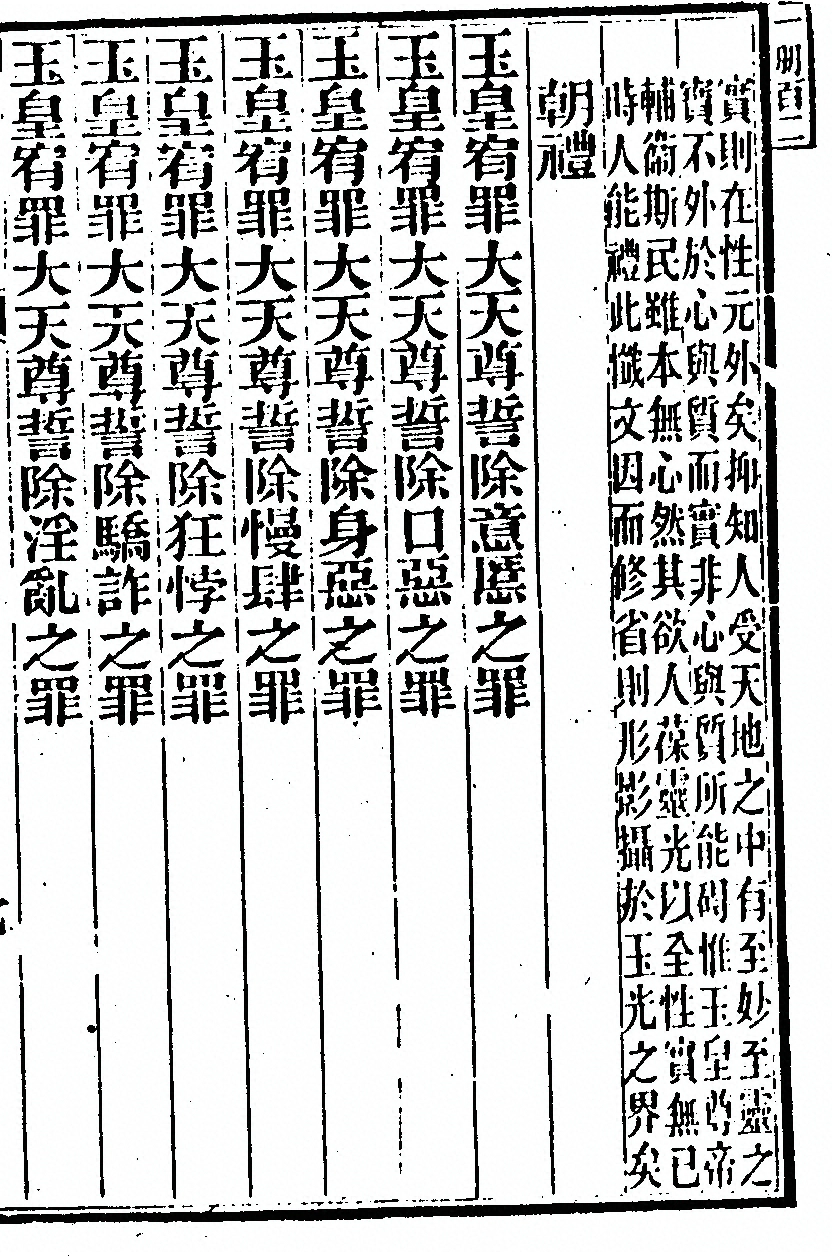 實則在性元外矣抑知人受天地之中有至妙至靈之
寶不外於心與質而實非心與質所能碍惟玉皇尊帝
輔衞斯民雖本無心然其欲人葆靈光以全性實無已
時人能禮此懺文因而修省則形影攝於玉光之界矣
朝禮
玉皇宥罪大天尊誓除意慝之罪
玉皇宥罪大天尊誓除口惡之罪
玉皇宥罪大天尊誓除身惡之罪
玉皇宥罪大天尊誓除慢肆之罪
玉皇宥罪大天尊誓除狂悖之罪
玉皇宥罪大天尊誓除驕詐之罪
玉皇宥罪大天尊誓除淫亂之罪